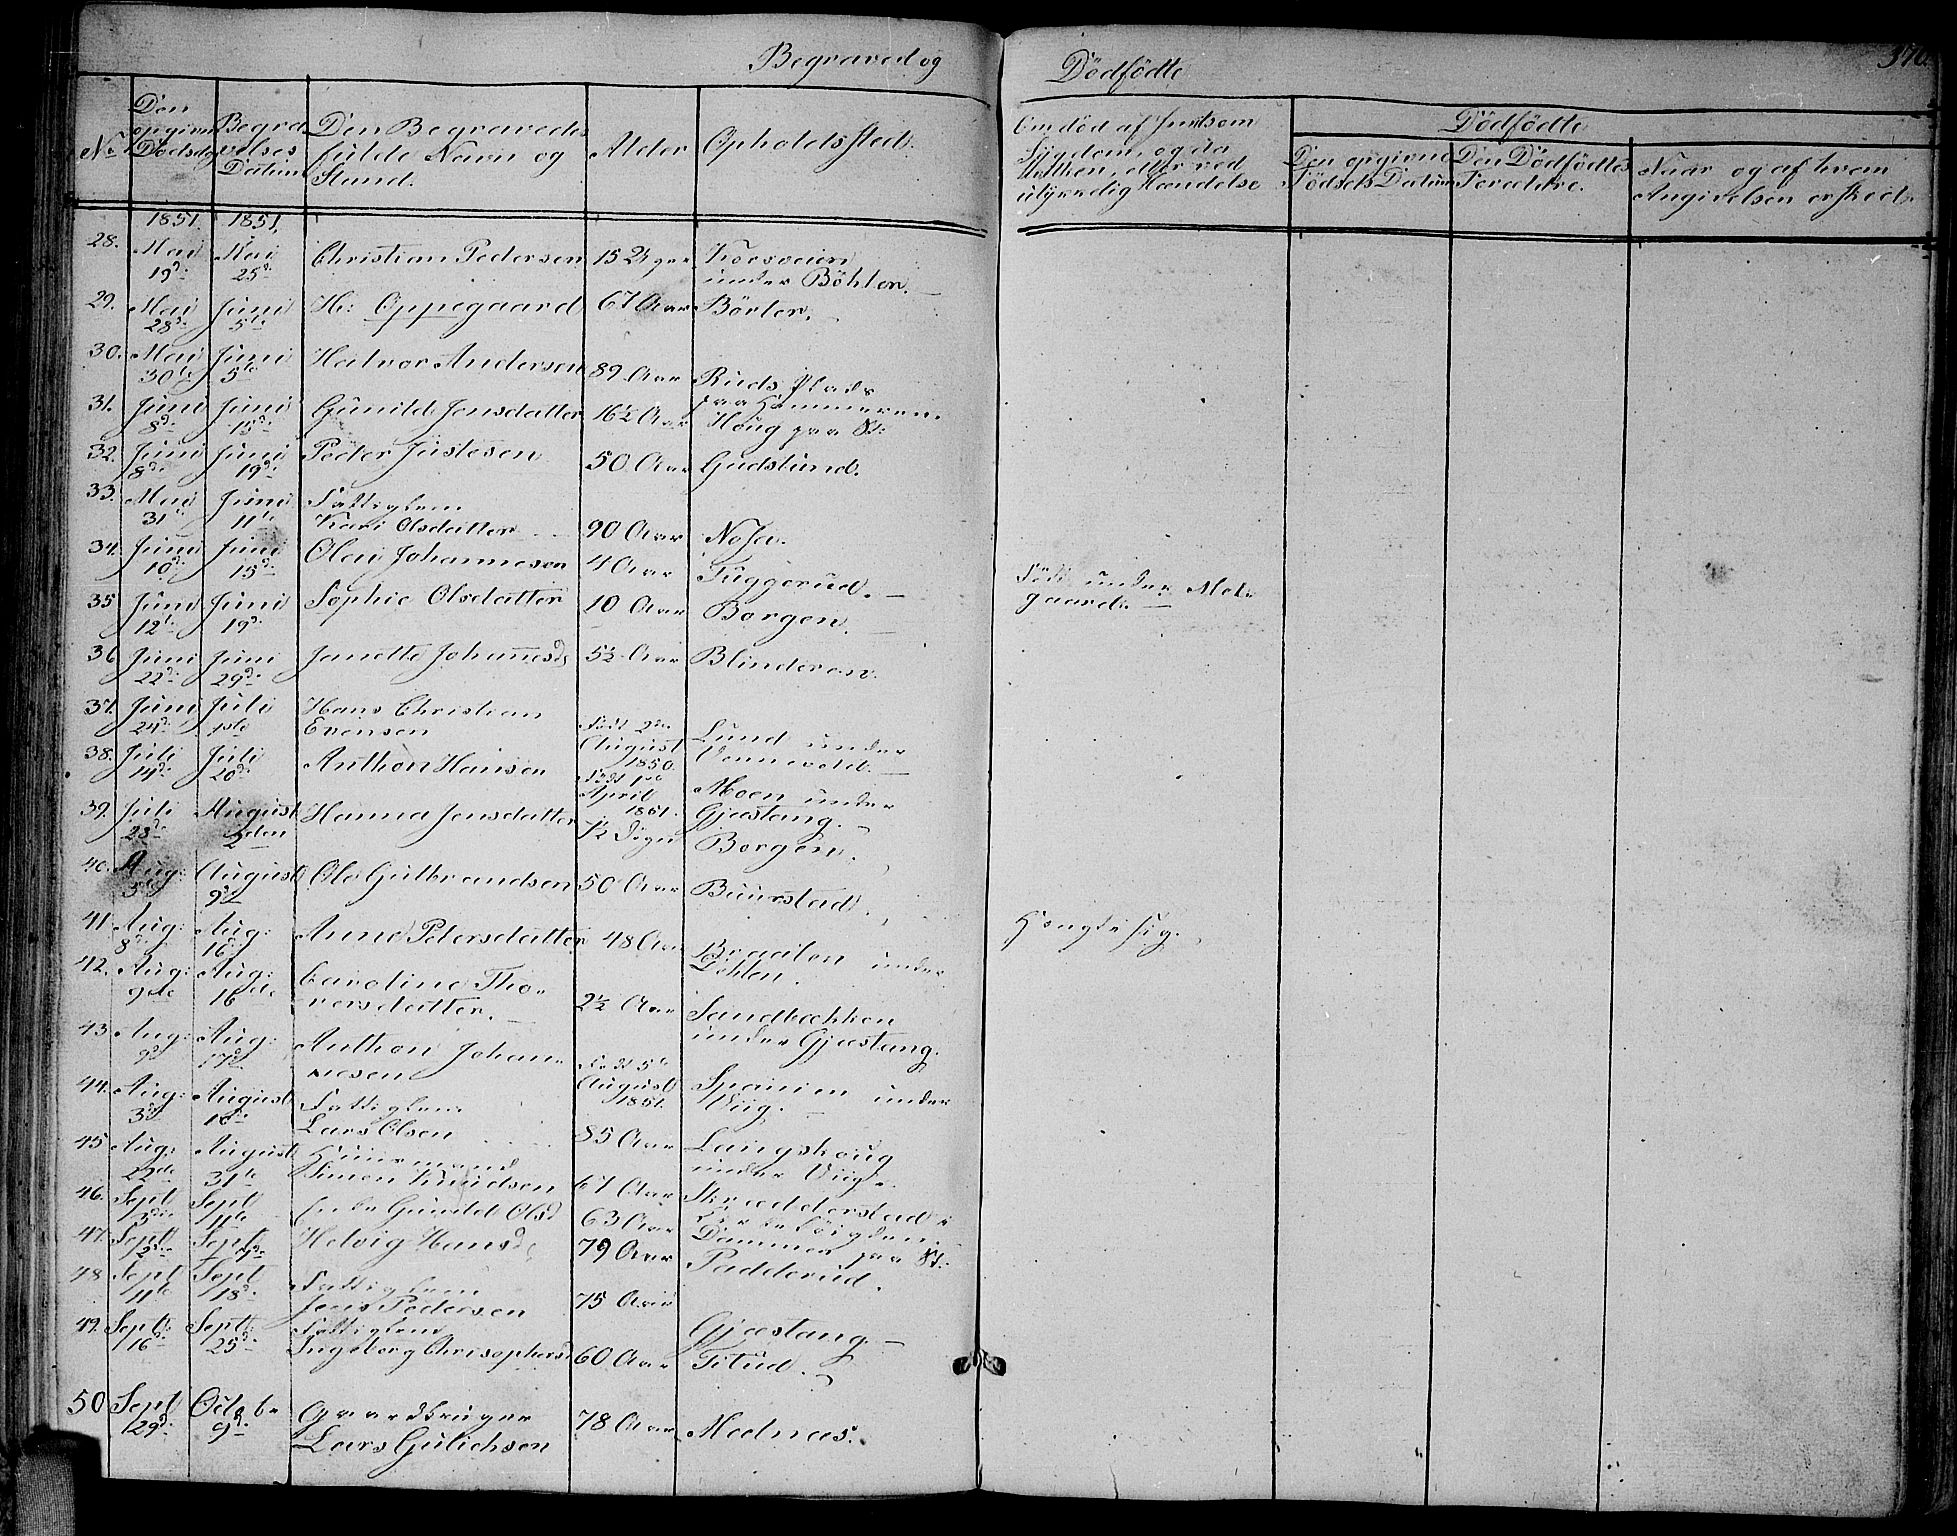 Begraved og
Dödfödte
376
No
Den opgivne Dödsdag
Begravelses Datum
Den Begravedes fulde Navn og Stand.
Alder
Opholdssted.
Om död af smitsom Sygdom, og da hvilken, eller ved ulykkelig Hændelse
Dödfödte
Den opgivne Födsels Datum
Den Dödfödtes Forældre.
Naar og af hvem Angivelsen er skeed.
1851. 1851.
28. Mai 19d: Mai 25d: Christian Pedersen 15 Korsveien under Böhler.
29. Mai 28d: Juni 5te Hr: Oppegaard 67 Aar Börter.
30. Mai 30te Juni 5te Halvor Andersen 89 Aar Ruds Plads paa Hammeren.
31. Juni 8d: Juni 15d: Gunild Jensdatter 16½ Aar Houg paa St:
32. Juni 8d: Juni 19d: Peder Justesen 50 Aar Gudslund.
33. Mai 31te Juni 11te Fattiglem Kari Olsdatter 90 Aar
34. Juni 10d: Juni 15d: Olai Johannesen 4 Aar Tuggerud.
35 Juni 12te Juni 19d: Sophie Olsdatter 10 Aar Borgen. Född under Mel gaard.
36 Juni 22d: Juni 29d: Janette Johannesd: 5½ Aar Blinderen.
37. Juni 24d: Juli 1ste Hans Christian Evensen Född 2den August 1850. Lund under Vennevold.
38. Juli 14d: Juli 20d: Anthon Hansen Född 1ste April 1851. Moen under Gjæstang.
39. Juli 28de August 2den Hanna Jensdatter ½ Dögn Borgen.
40. Aug: 3d August 9d Ole Gulbrandsen 50 Aar Buurstad.
41 Aug: 8d: Aug: 16d: Anne Petersdatter 48 Aar Braaten under Döhlen. Hængte sig.
42. Aug: 9de Aug: 16de Caroline Thoresdatter. 2½ Aar Sandbækken under Gjæstang.
43. Aug: 9d Aug: 17d Anthon Johannesen Född 5te August 1851. Spanien under Viig.
44. Aug: 3d August 10d: Fattiglem Lars Olsen 85 Aar Langskoug under Viig.
45 Aug: 22de August 31te Huusmand Simen Knudsen 67 Aar Skrædderstad i
46. Sept 3die Sept 11te Enke Gunild Olsd 63 Aar Dammen paa St:
47. Sept 2d: Sept 9d: Helvig Hansd: 79 Aar Padderud.
48 Sept 11te Sept 18d: Fattiglem Jens Pedersen 75 Aar Gjæstang.
49. Sept: 16d: Sept: 25d: Fattiglem Ingeborg Chrisophersd 60 Aar Titud.
50 Sept 29d: Octobr 9d: Gaardbruger Lars Gulichsen 78 Aar Mednæs.